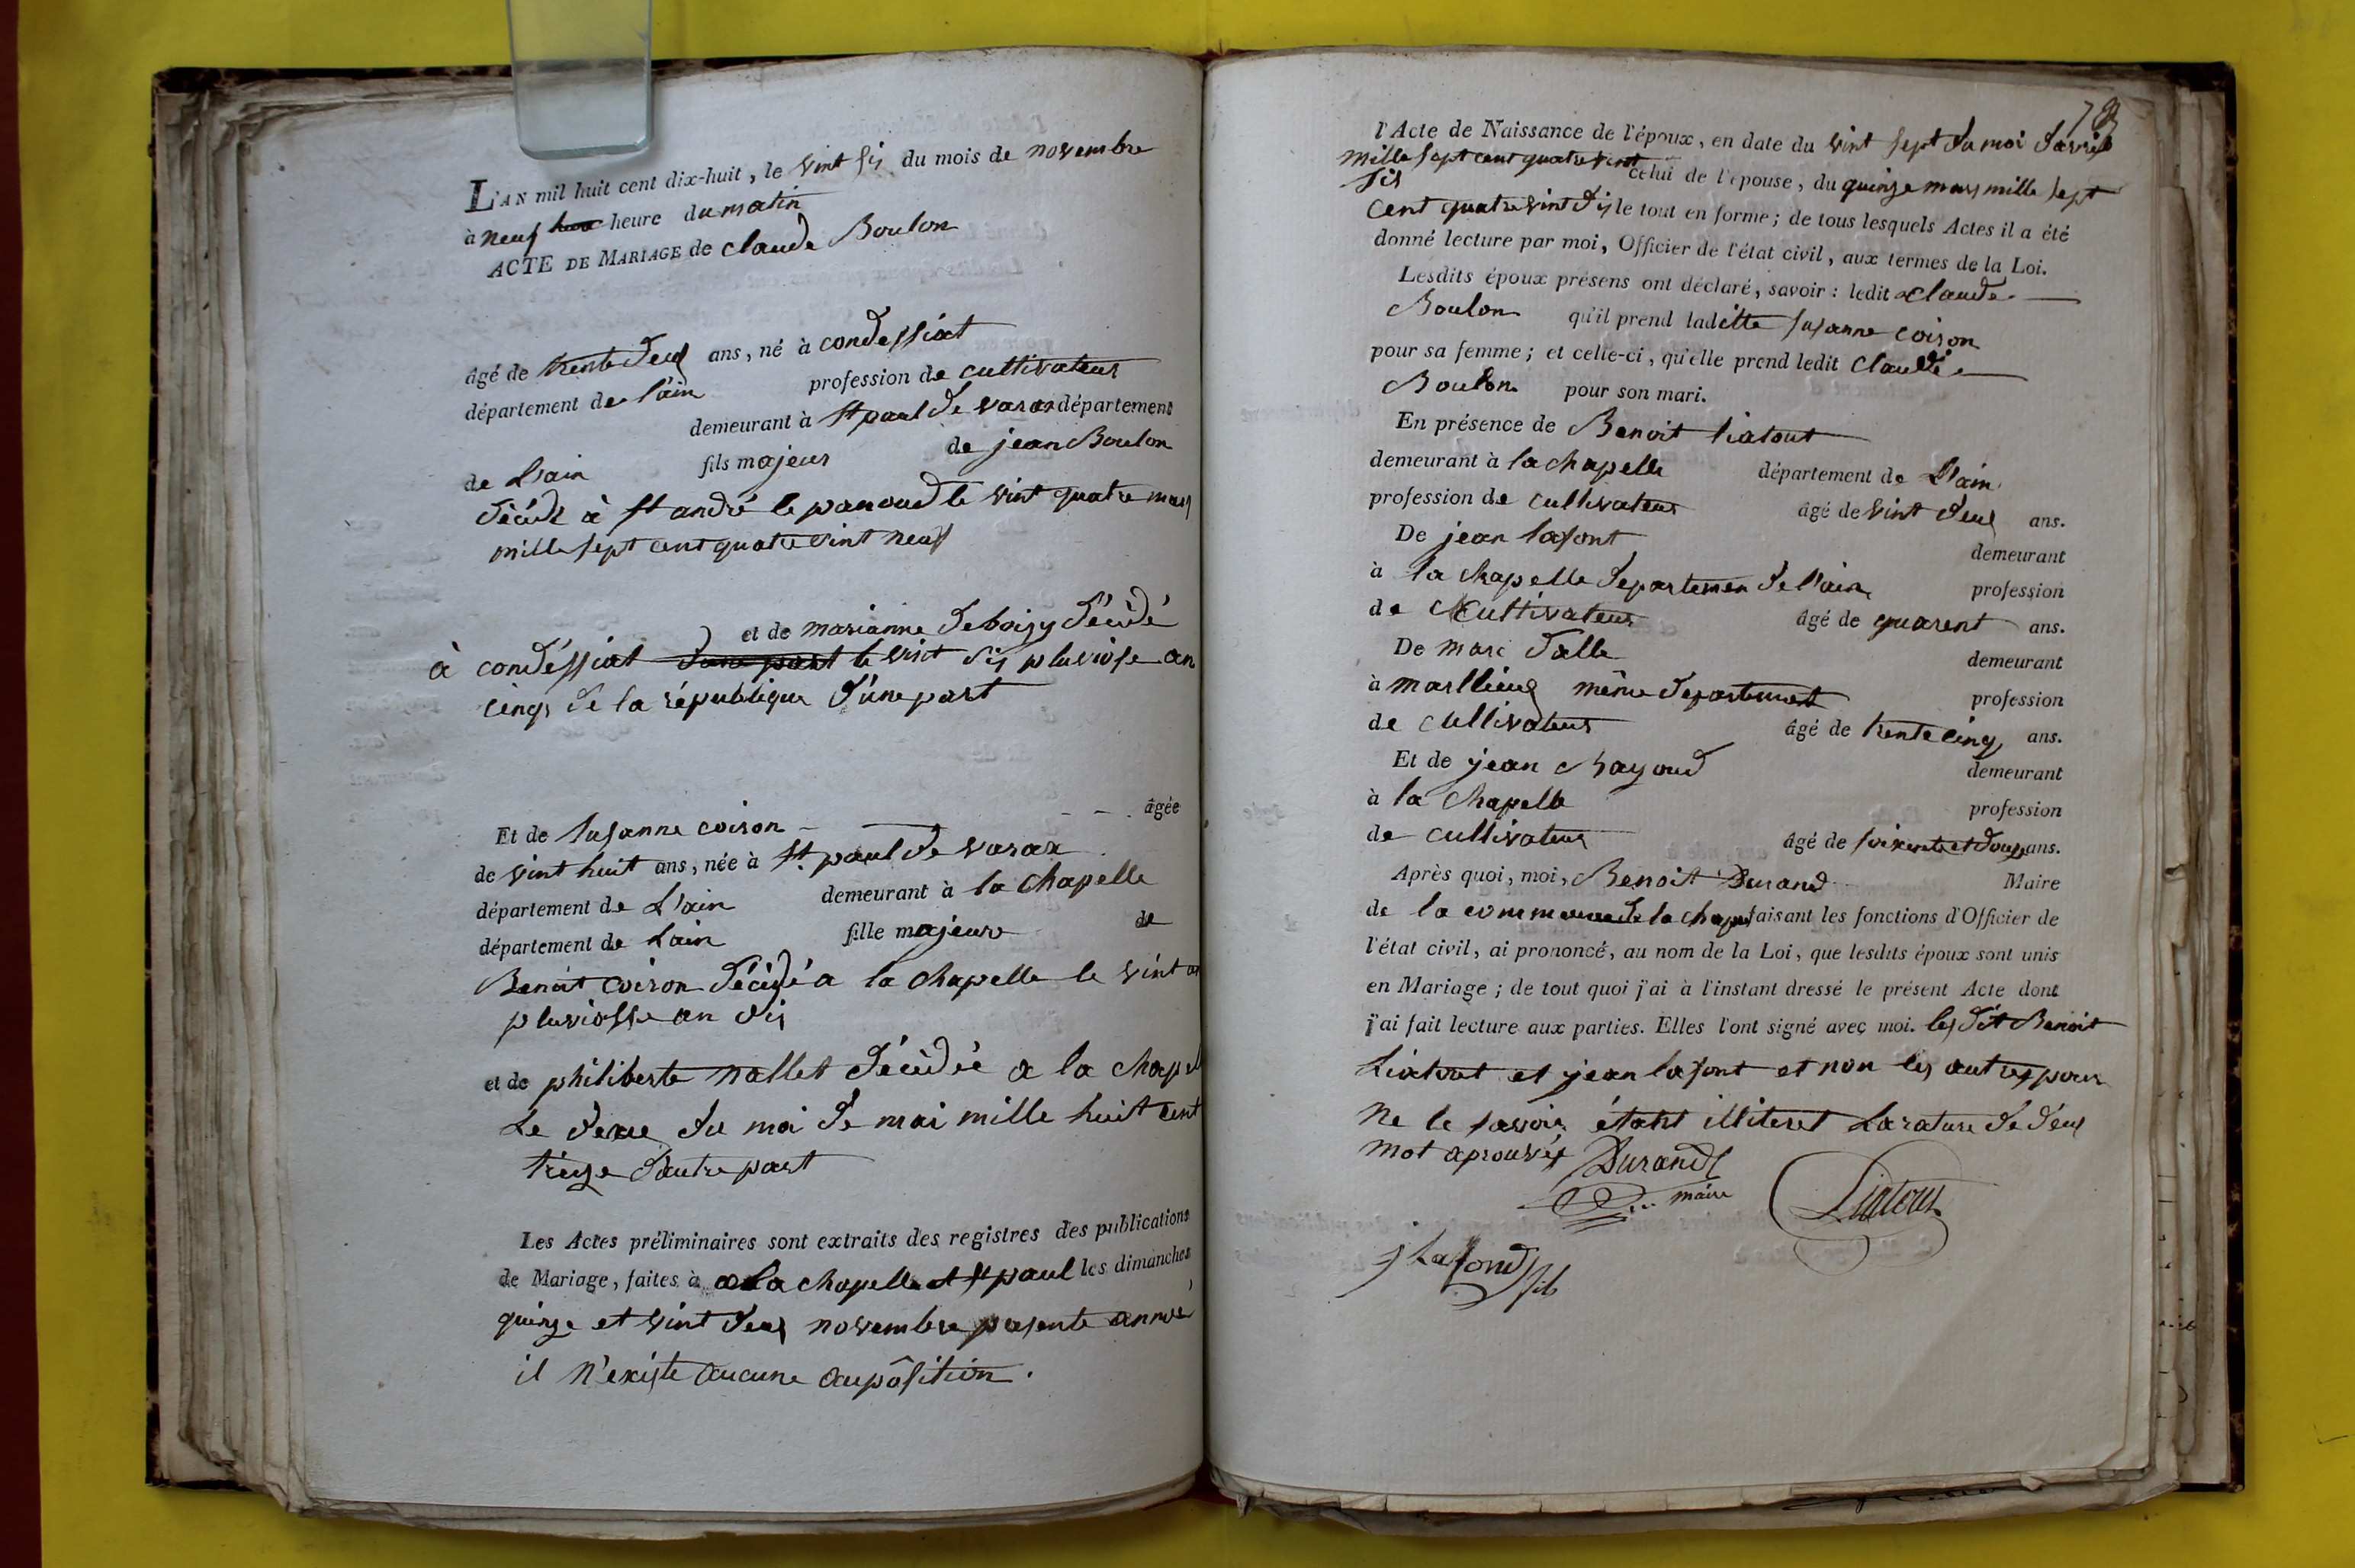 L'AN mil huit cent dix-huit, le vint six du mois de novembre
à neuf heure du matin
ACTE DE MARIAGE de claude Boulon
âgé de trente deux ans, né à condessiat
département de l'ain profession de cultivateur
demeurant à St paul de varax département
de L'ain fils majeur de jean Boulon
décidé à St andré le panoud le vint quatre mars
mille sept cent quatre vint neuf
et de marianne deboisy décidé
à condéssiat d'une part le vint six pluviose an
cinq de la république d'une part
Et de susanne coison âgée
de vint huit ans, née à St paul de varax
département de L'ain demeurant à la chapelle
département de Lain fille majeure de
Benoit coison décidé a la chapelle le vint
pluviosse an dix
et de philiberte nallet décidée a la chapel
Le deux du moi de mai mille huit cent
treize d'autre part
Les Actes préliminaires sont extraits des registres des publications
de Mariage, faites à a La chapelle et St paul les dimanches
quinze et vint deux novembre presente année
il n'existe aucune oupôsition.
l'Acte de Naissance de l'époux, en date du vint sept du moi d'avril
mille sept cent quatre vint
six celui de l'épouse, du quinze mars mille sept
cent quatre vint dix le tout en forme; de tous lesquels Actes il a été
donné lecture par moi, Officier de l'état civil, aux termes de la Loi.
Lesdits époux présens ont déclaré, savoir : ledit claude
Boulon qu'il prend laditte susanne coison
pour sa femme; et celle-ci, qu'elle prend ledit claude
Boulon pour son mari.
En présence de Benoit liatout
demeurant à la chapelle département de L'ain
profession de cultivateur âgé de vint deux ans.
De jean lafont demeurant
à la chapelle departemen de l'ain profession
de cultivateur âgé de quarent ans.
De marc dalle demeurant
à marllieux même departement profession
de cultivateur âgé de trente cinq ans.
Et de jean Rayoud demeurant
à la chapelle profession
de cultivateur âgé de soixente et douze ans.
Après quoi, moi, Benoit Durand Maire
de la commune de la chapel faisant les fonctions d'Officier de
l'état civil, ai prononcé, au nom de la Loi, que lesdits époux sont unis
en Mariage; de tout quoi j'ai à l'instant dressé le présent Acte dont
j'ai fait lecture aux parties. Elles l'ont signé avec moi. les dit Benoit
Liatout et jean lafont et non les autres pour
ne le savoir étant illiteret La rature de deux
mot aprouvés Durand
maire Liatout
j Lafond fils